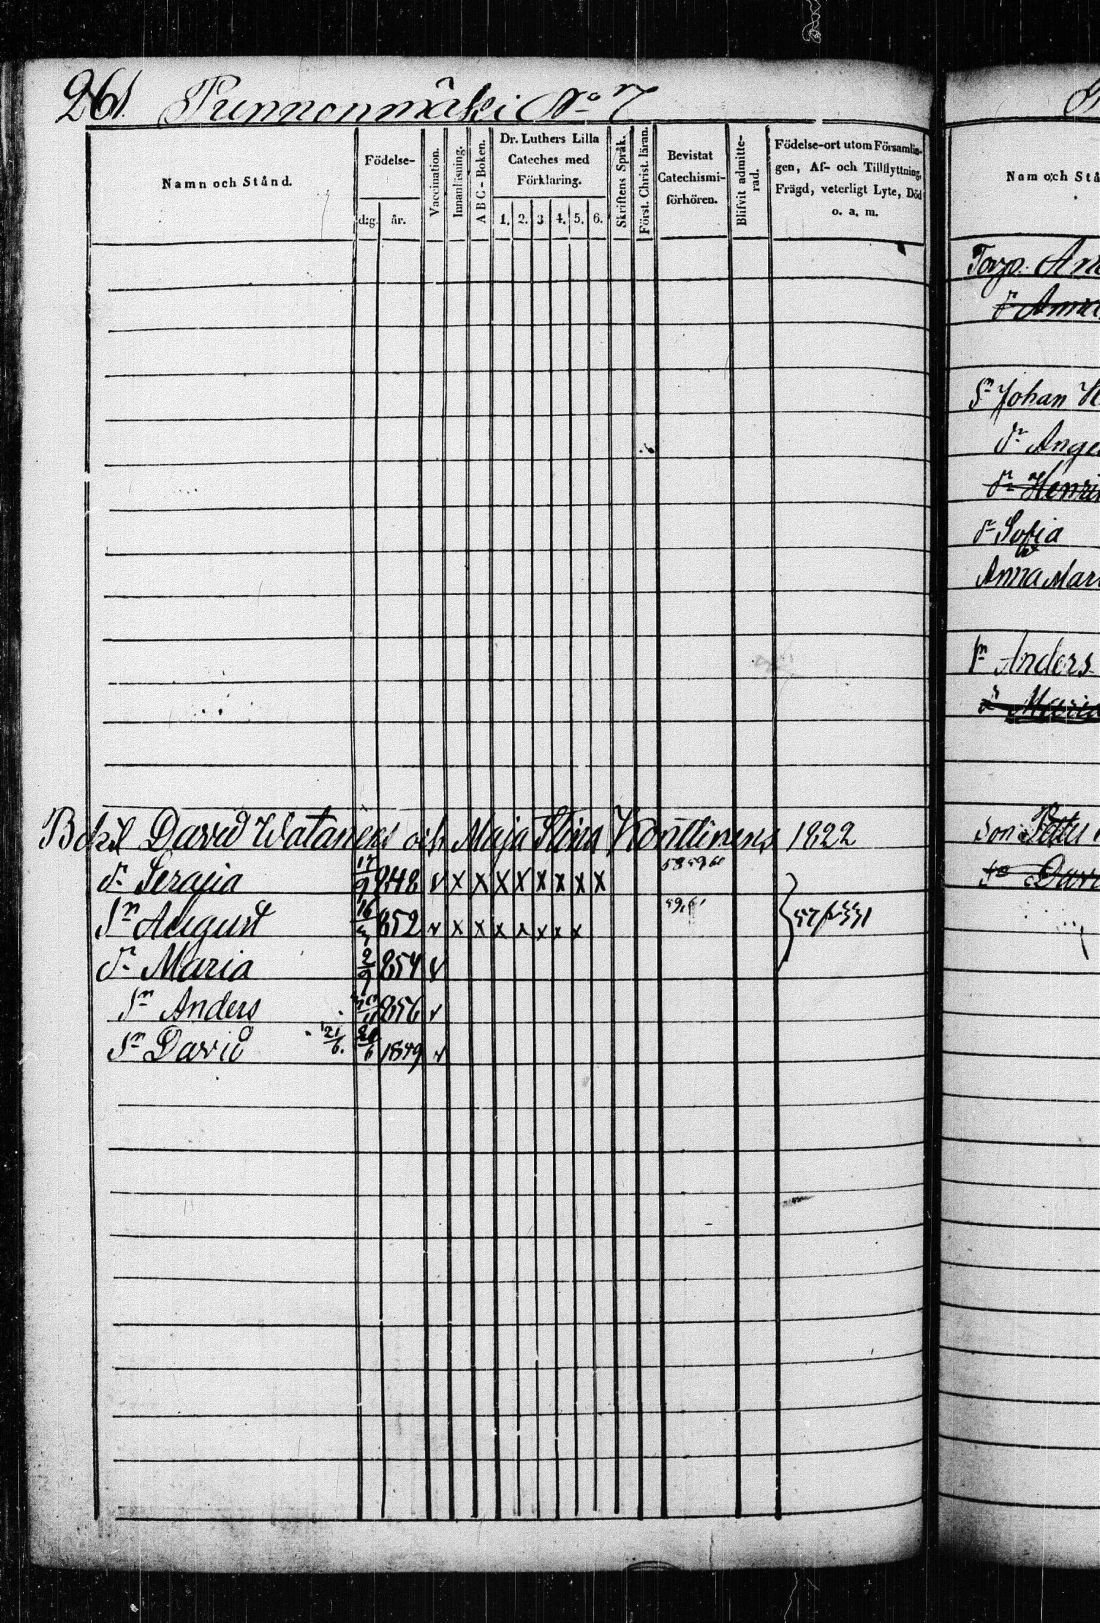 261. Punnonmäki No 7
Namn och Stånd.
Födelse-
d:g. år.
Vaccination.
Innanläsning.
A B C - Boken.
Dr. Luthers Lilla
Cateches med
Förklaring.
1. 2. 3 4. 5. 6.
Skriftens Språk.
Först. Christ. läran.
Bevistat
Catechismi-
förhören.
Blifvit admitte-
rad.
Födelse-ort utom Församlin-
gen, Af- och Tillflyttning,
Frägd, veterligt Lyte, Död
o. a. m.
David Watanens och Maja Stina Konttinens 1822
dr Serafia 17/9 848 v x x x x x x x x 58 59 60
Sn August 16 852 v x x x x x x x 59, 61
dr Maria 2/9 854 v
Sn Anders 856 v
Sn David 21/6. 1849 v
Nam och Stå
Torp. An
dr Anna
Sn Johan H
dr Ange
dr Henri
dr Sofia
Anna Mar
Sn Anders
dr Maria
Son
Sn Davi